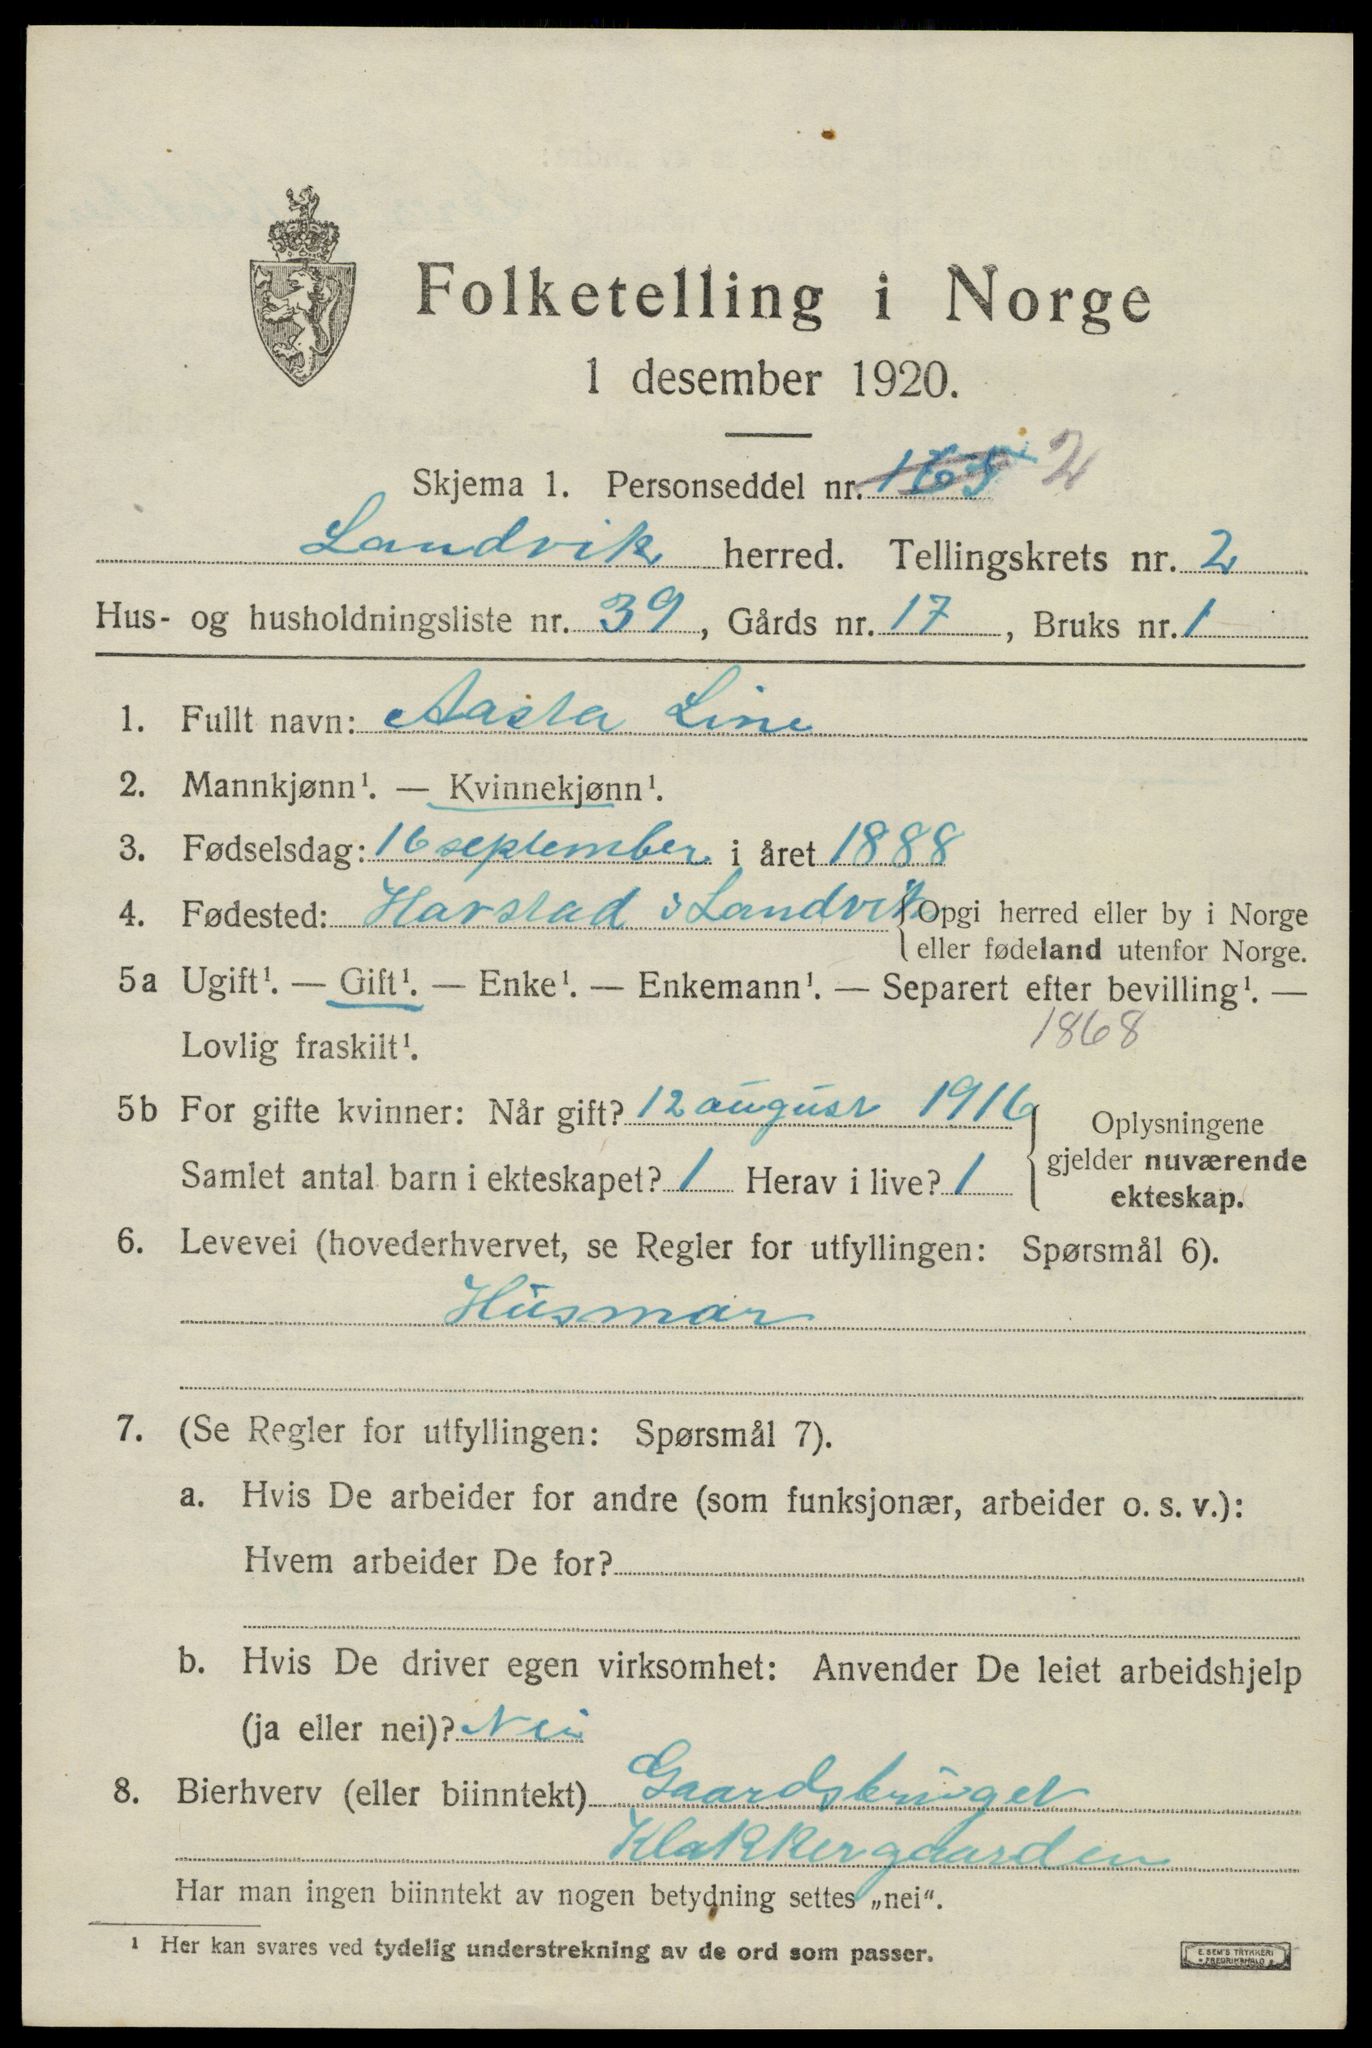 Folketelling i Norge
1 desember 1920.
Skjema 1. Personseddel nr. 165 2
Landvik herred. Tellingskrets nr. 2
Hus- og husholdningsliste nr. 39, Gårds nr. 17, Bruks nr. 1
1. Fullt navn: Aasta Line
2. Mannkjønn¹. — Kvinnekjønn¹.
3. Fødselsdag: 16 september i året 1888
4. Fødested: Harstad i Landvik {Opgi herred eller by i Norge
eller fødeland utenfor Norge.
5a Ugift¹. — Gift¹. — Enke¹. — Enkemann¹. — Separert efter bevilling¹. —
Lovlig fraskilt¹. 1868
5b For gifte kvinner: Når gift? 12 august 1916
Samlet antal barn i ekteskapet? 1 Herav i live? 1
Oplysningene
gjelder nuværende
ekteskap.
6. Levevei (hovederhvervet, se Regler for utfyllingen: Spørsmål 6).
Husmor
7. (Se Regler for utfyllingen: Spørsmål 7).
a. Hvis De arbeider for andre (som funksjonær, arbeider o. s. v.):
Hvem arbeider De for?
b. Hvis De driver egen virksomhet: Anvender De leiet arbeidshjelp
(ja eller nei)? Nei
8. Bierhverv (eller biinntekt) Gaardsbruget
Klakkergaarden
Har man ingen biinntekt av nogen betydning settes „nei“.
¹ Her kan svares ved tydelig understrekning av de ord som passer.
E. SEM'S TRYKKERI
FREDRIKSHALD